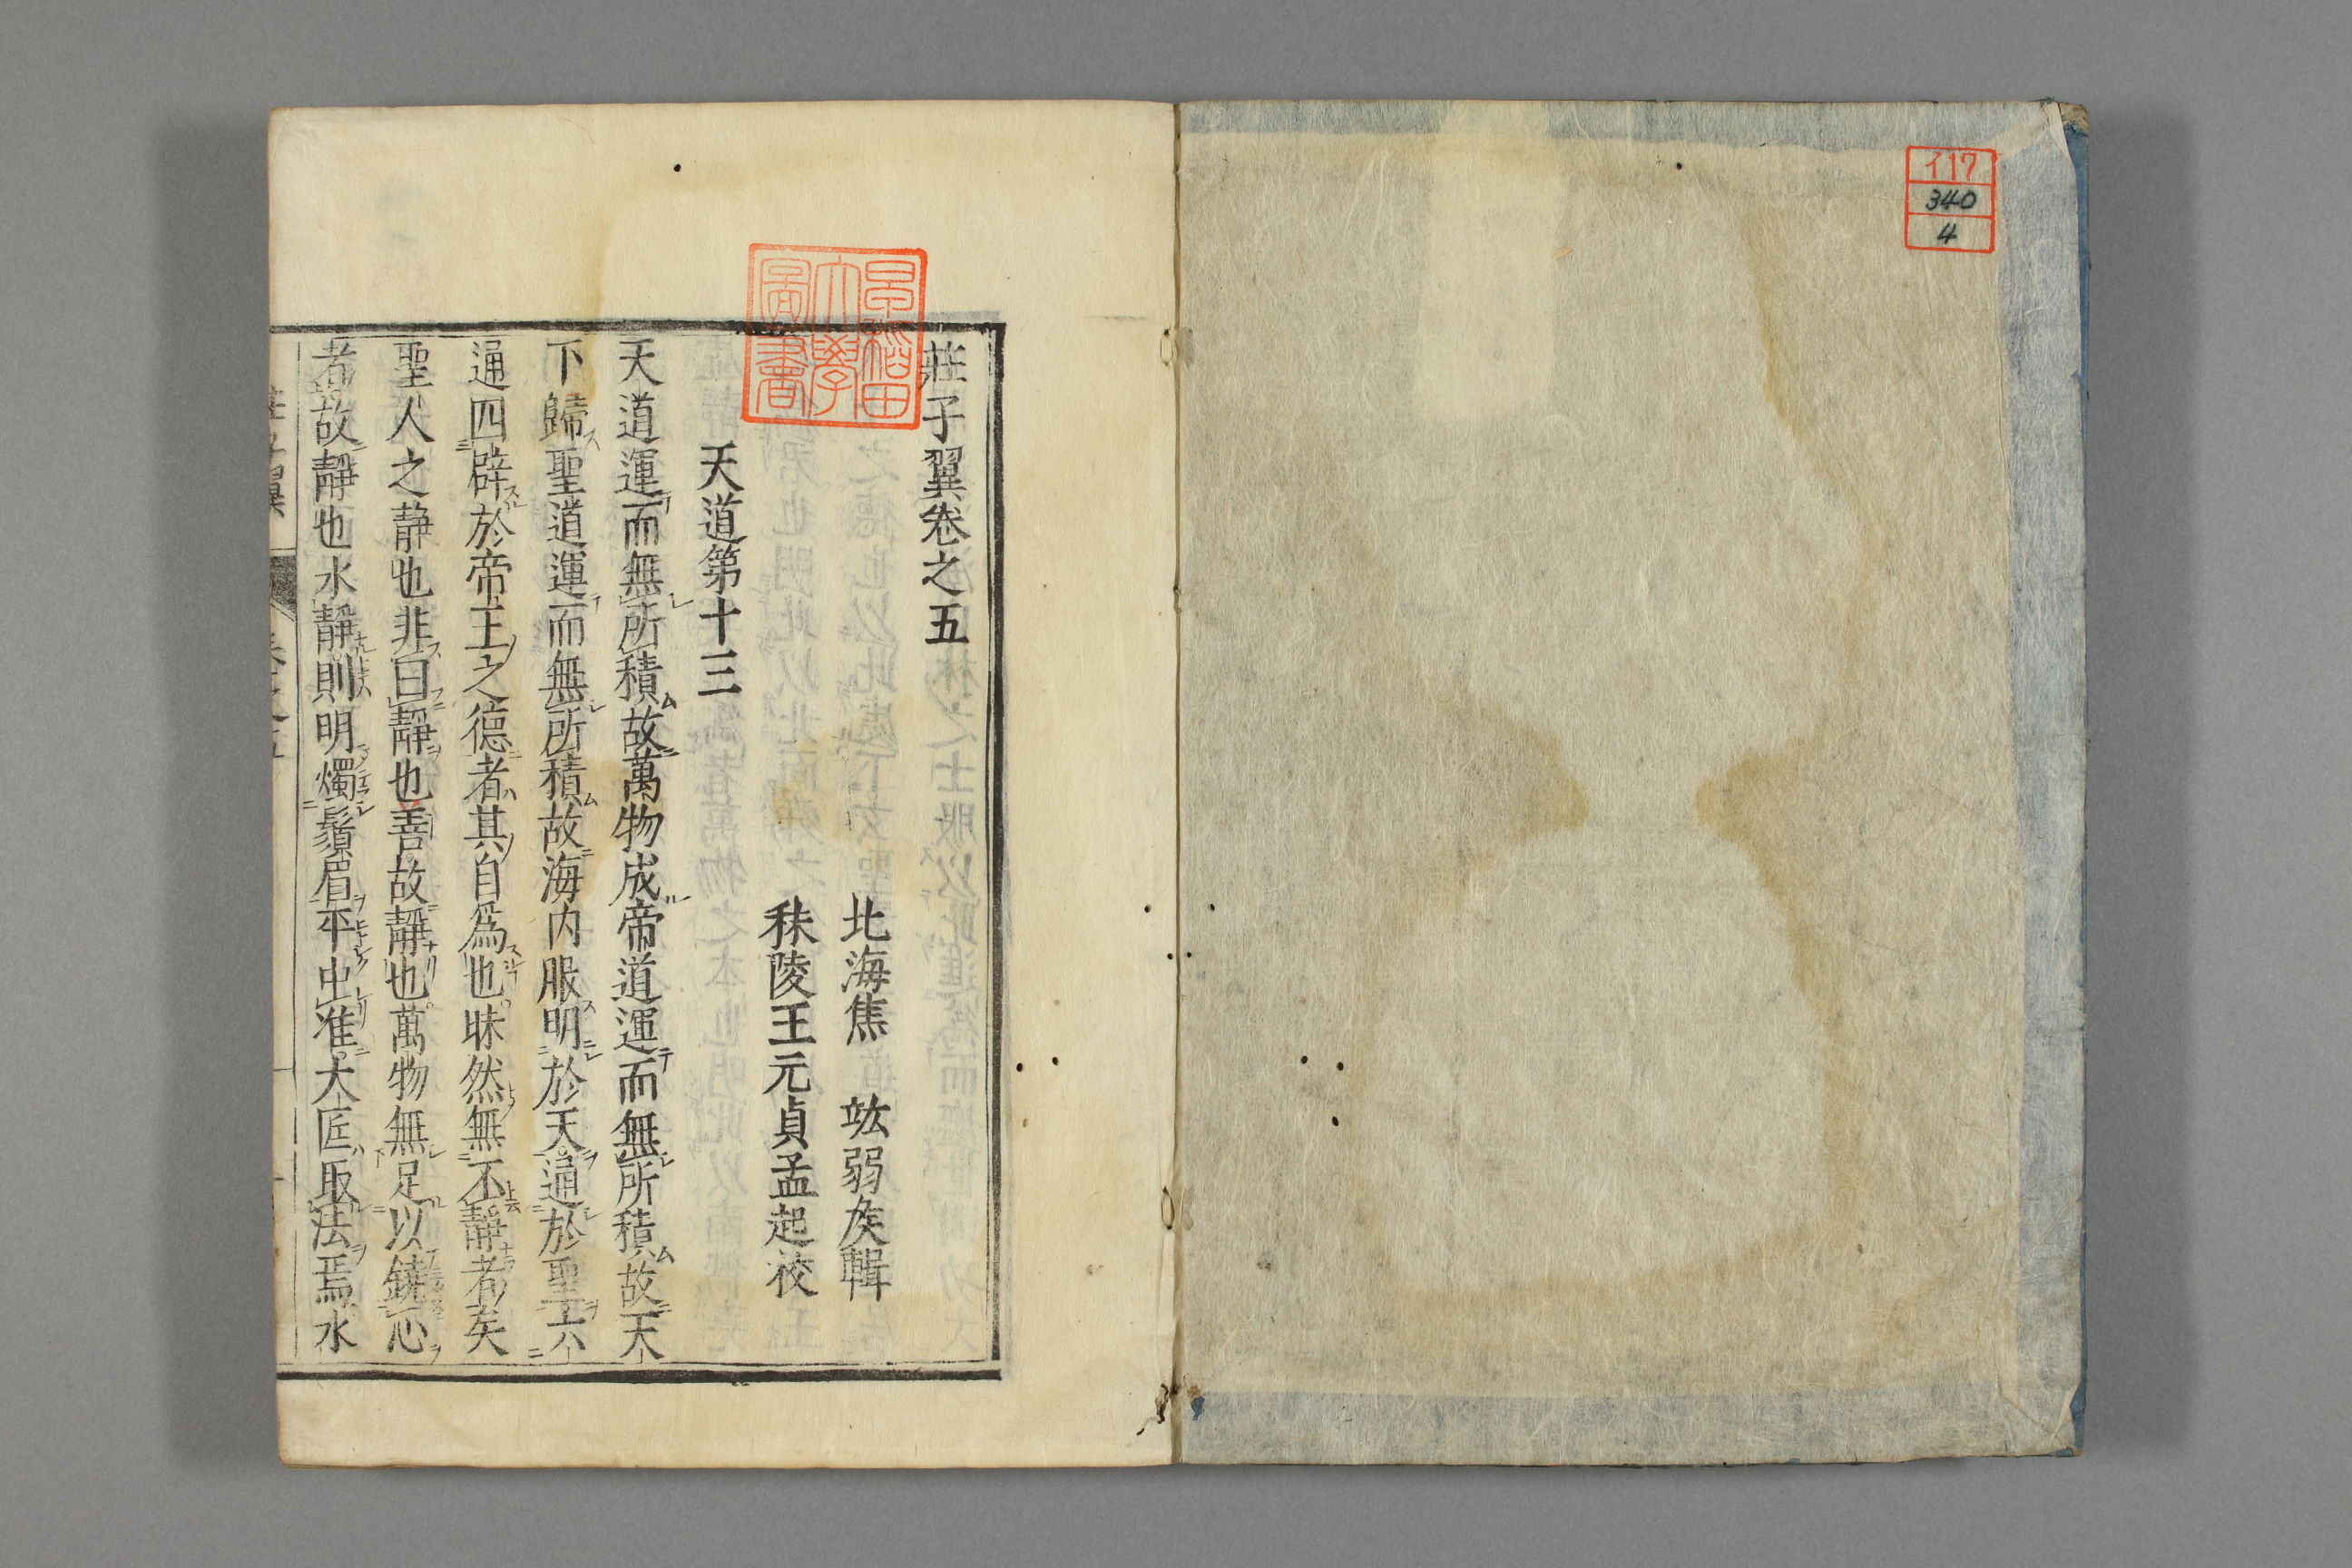 イ17
340
4
早稲田
大學
圖書
莊子翼卷之五
北海焦 竑弱侯輯
秣陵王元貞孟起校
天道第十三
天道運而無所積故萬物成帝道運而無所積故天
下歸聖道運而無所積故海内服明於天通於聖六
通四辟於帝王之德者其自爲也昧然無不靜者矣
聖人之静也非曰靜也善故靜也萬物無足以鐃心
者故靜也水靜則明燭鬚眉平中准大匠取法焉水